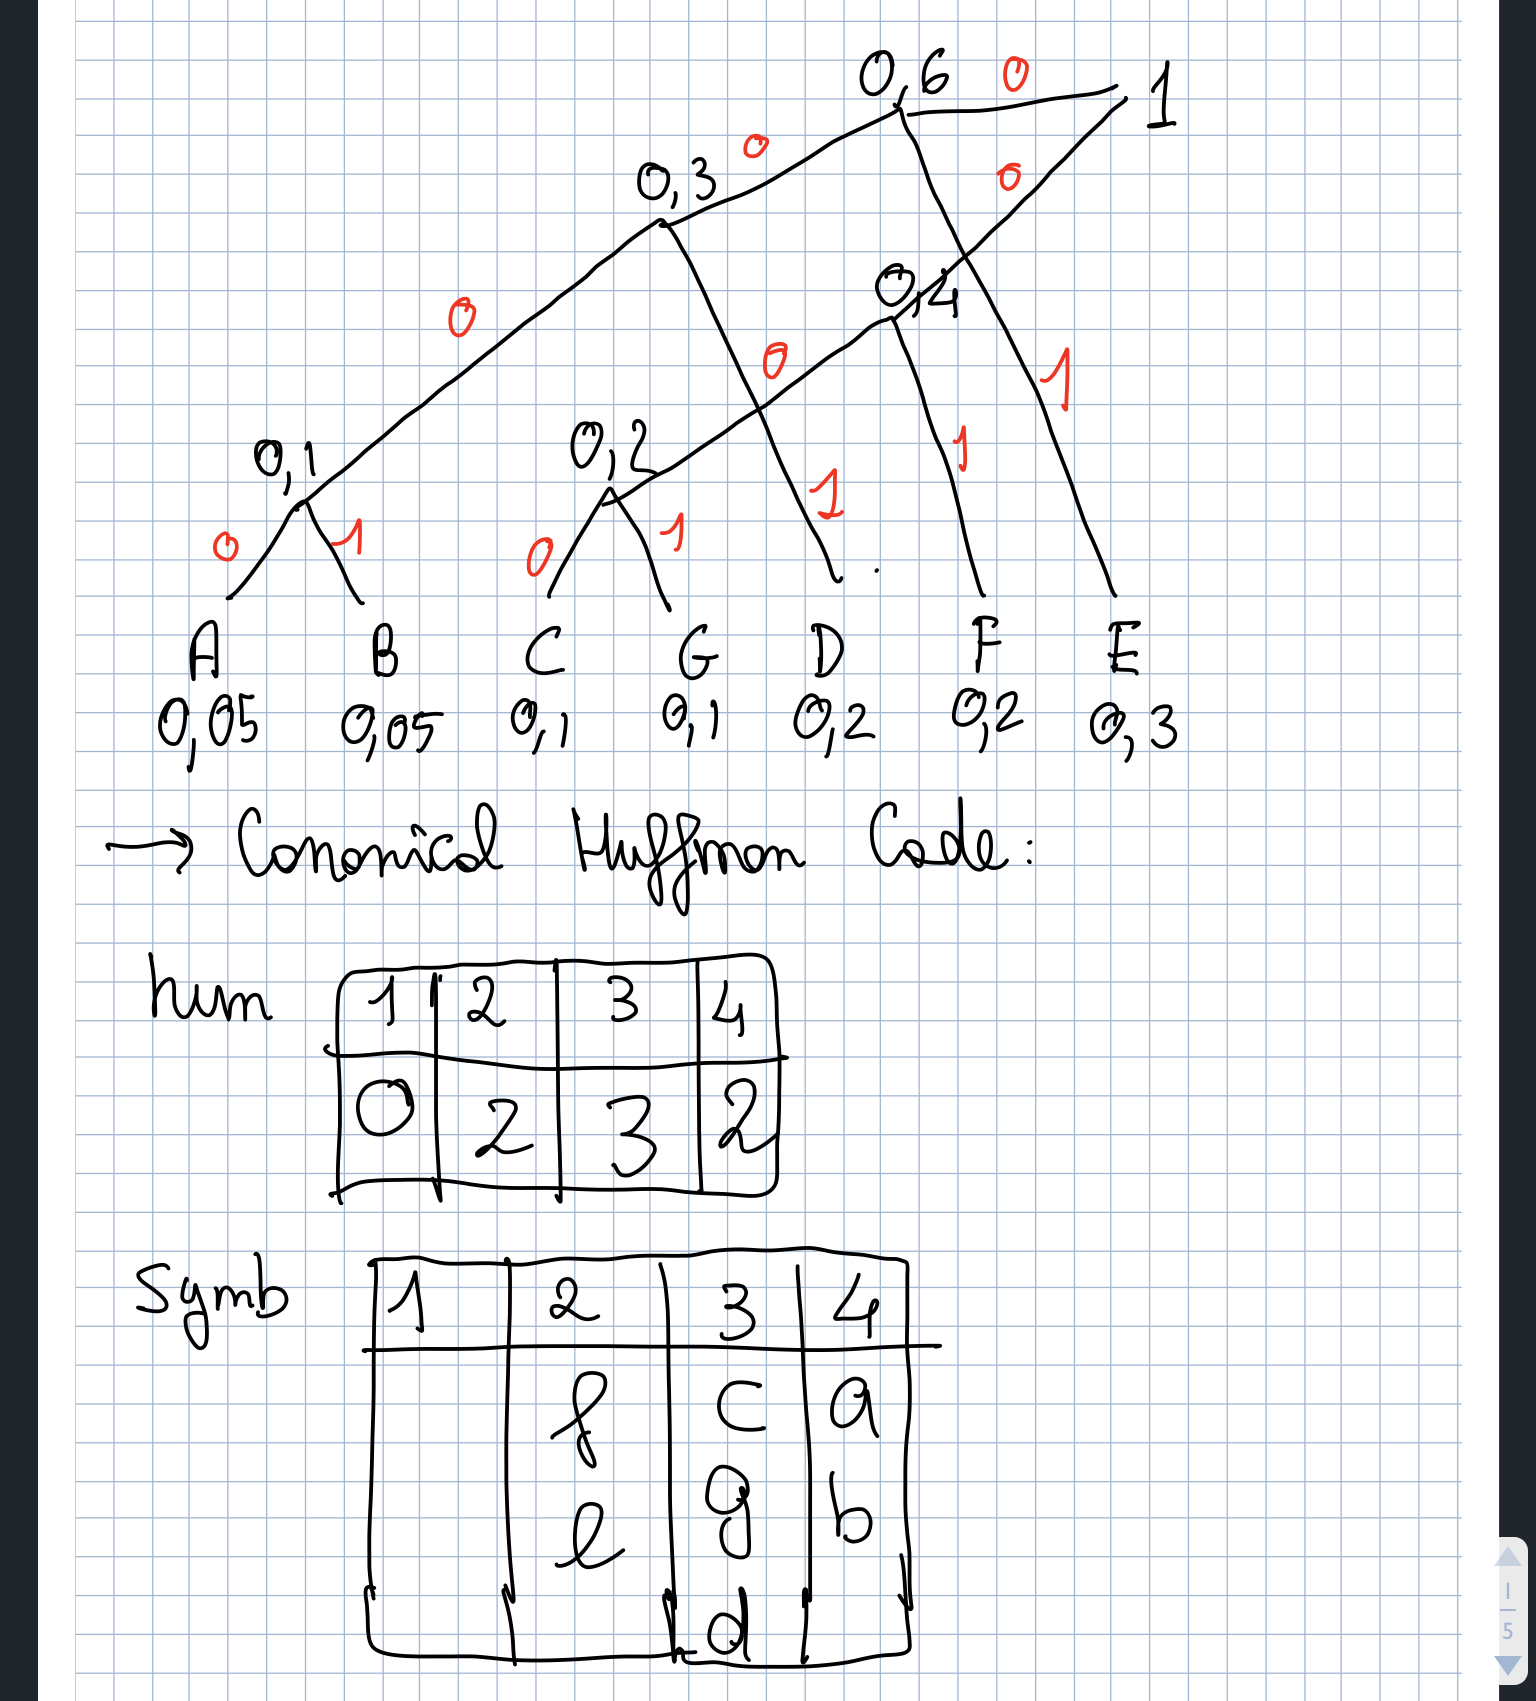 0,6 0 1
0
0,3 0
0,4
0 0 1
0,1 0,2 1
1
0 1 0 1
A B C G D F E
0,05 0,05 0,1 0,1 0,2 0,2 0,3
→ Canonical Huffman Code:
num 1 2 3 4
0 2 3 2
Symb 1 2 3 4
f c a
e g b
d
1
5